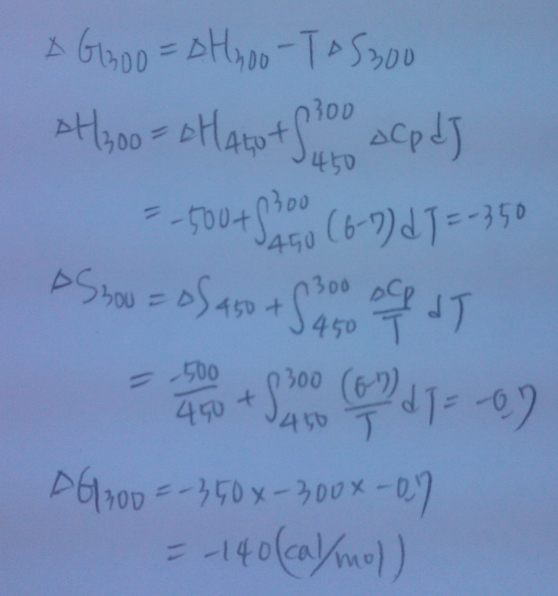 ΔG300 = ΔH300 - TΔS300
ΔH300 = ΔH450 + ∫450^300 ΔCp dT
= -500 + ∫450^300 (6-7) dT = -350
ΔS300 = ΔS450 + ∫450^300 ΔCp/T dT
= -500/450 + ∫450^300 (6-7)/T dT = -0.7
ΔG300 = -350 x -300 x -0.7
= -140 (cal/mol)